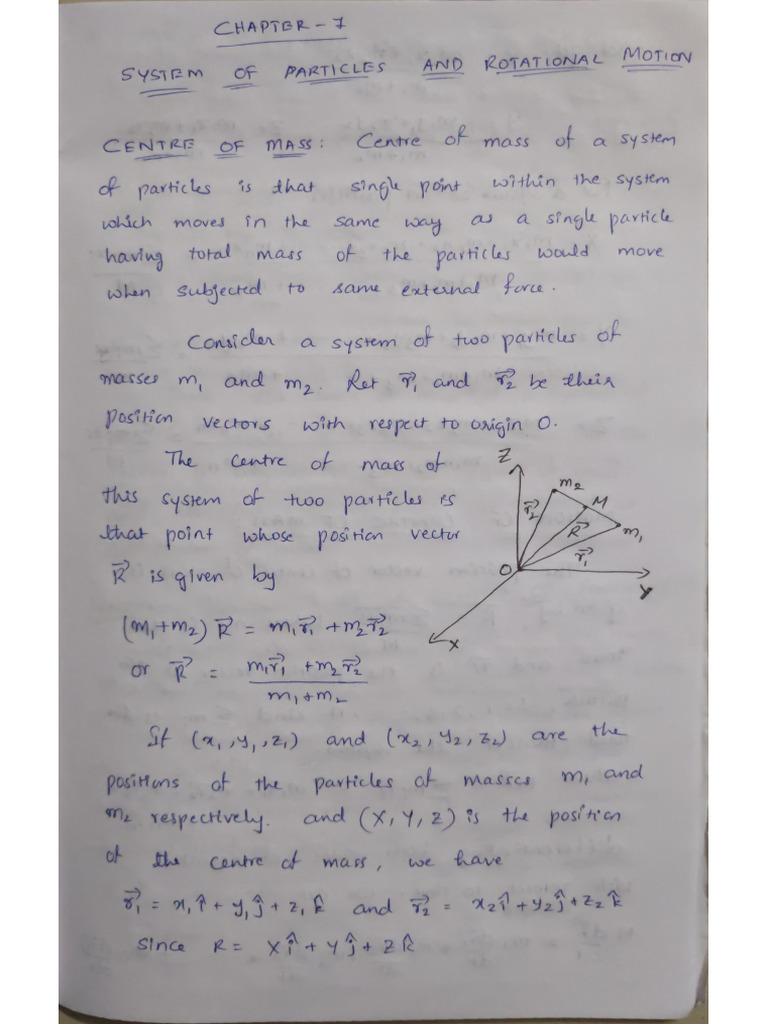 CHAPTER - 7
SYSTEM OF PARTICLES AND ROTATIONAL MOTION
CENTRE OF MASS: Centre of mass of a system
of particles is that single point within the system
which moves in the same way as a single particle
having total mass of the particles would move
when subjected to same external force.
Consider a system of two particles of
masses m₁ and m₂. Let r⃗₁ and r⃗₂ be their
position vectors with respect to origin O.
The centre of mass of
this system of two particles is
that point whose position vector
R⃗ is given by
(m₁+m₂) R⃗ = m₁r⃗₁ + m₂r⃗₂
or R⃗ = m₁r⃗₁ + m₂r⃗₂
m₁+m₂
Z
m₂
M
r⃗₂
R⃗
m₁
r⃗₁
O
Y
X
If (x₁, y₁, z₁) and (x₂, y₂, z₂) are the
positions of the particles of masses m₁ and
m₂ respectively. and (X, Y, Z) is the position
of the centre of mass, we have
r⃗₁ = x₁î + y₁ĵ + z₁k̂ and r⃗₂ = x₂î + y₂ĵ + z₂k̂
Since R = Xî + Yĵ + Zk̂